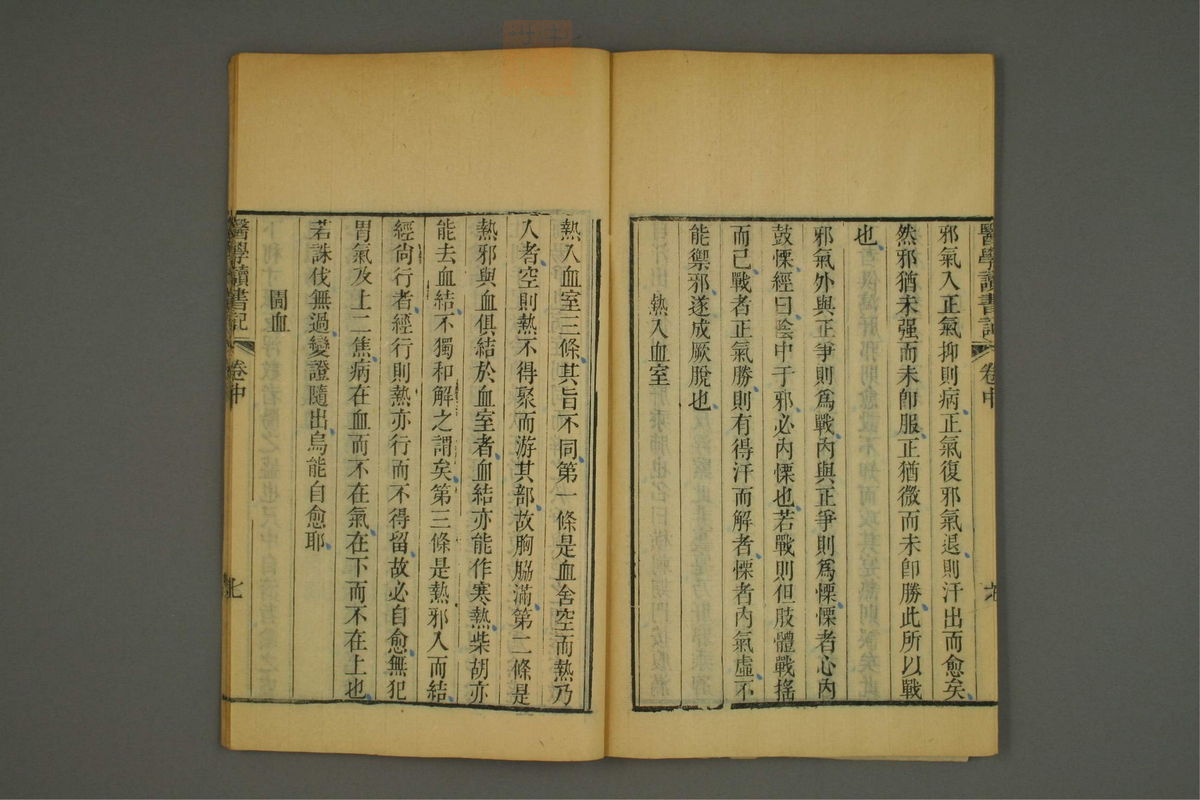 醫學讀書記 卷中
邪氣入正氣抑則病正氣復邪氣退則汗出而愈矣
然邪猶未强而未卽服正猶微而未卽勝此所以戰
也
邪氣外與正爭則爲戰內與正爭則爲慄慄者心內
鼓慄經曰陰中于邪必內慄也若戰則但肢體戰搖
而已戰者正氣勝則有得汗而解者慄者內氣虛不
能禦邪遂成厥脫也
熱入血室
熱入血室三條其旨不同第一條是血舍空而熱乃
入者空則熱不得聚而游其部故胸脇滿第二條是
熱邪與血俱結於血室者血結亦能作寒熱柴胡亦
能去血結不獨和解之謂矣第三條是熱邪入而結
經尙行者經行則熱亦行而不得留故必自愈無犯
胃氣及上二焦病在血而不在氣在下而不在上也
若誅伐無過變證隨出烏能自愈耶
圊血
醫學讀書記 卷中 七